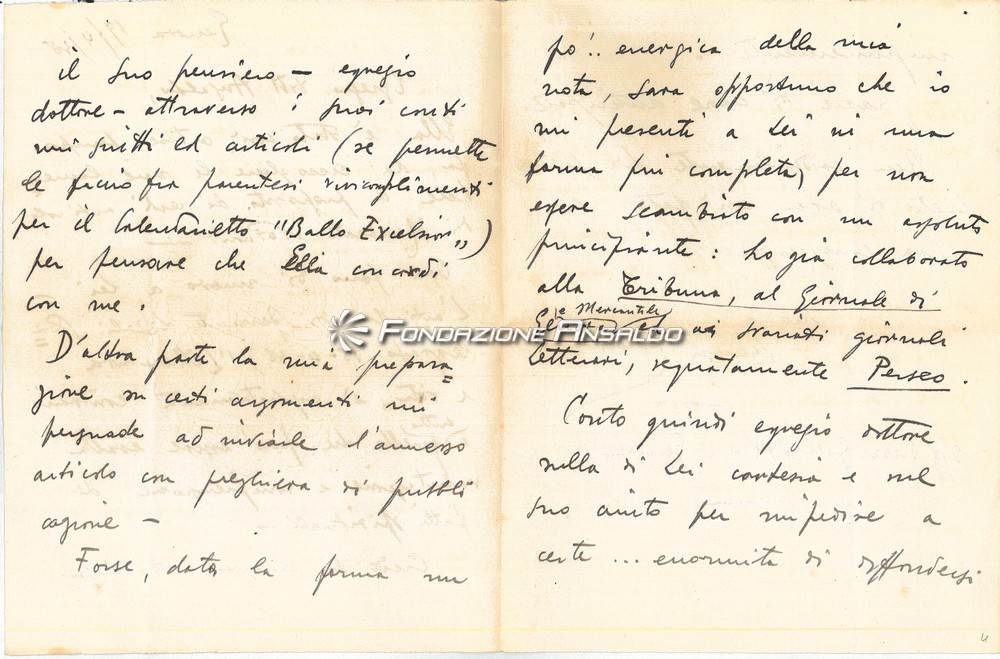 il suo pensiero — egregio
dottore — attraverso i suoi
scritti ed articoli (se permette
le faccio fra parentesi vivi complimenti
per il Calendarietto "Ballo Excelsior„)
per pensare che Ella concordi
con me.
D'altra parte la mia prepara=
zione su certi argomenti mi
persuade ad inviarle l'annesso
articolo con preghiera di pubbli
cazione —
Forse, data la forma un
po'.. energica della mia
nota, sarà opportuno che io
mi presenti a Lei in una
forma più completa, per non
essere scambiato con un assoluto
principiante: ho già collaborato
alla Tribuna, al Giornale di
e Mercantile
ed ai svariati giornali
letterari, segnatamente Perseo.
Conto quindi egregio dottore
sulla di Lei cortesia e sul
suo aiuto per impedire a
certe ... enormità di diffondersi
Fondazione Ansaldo